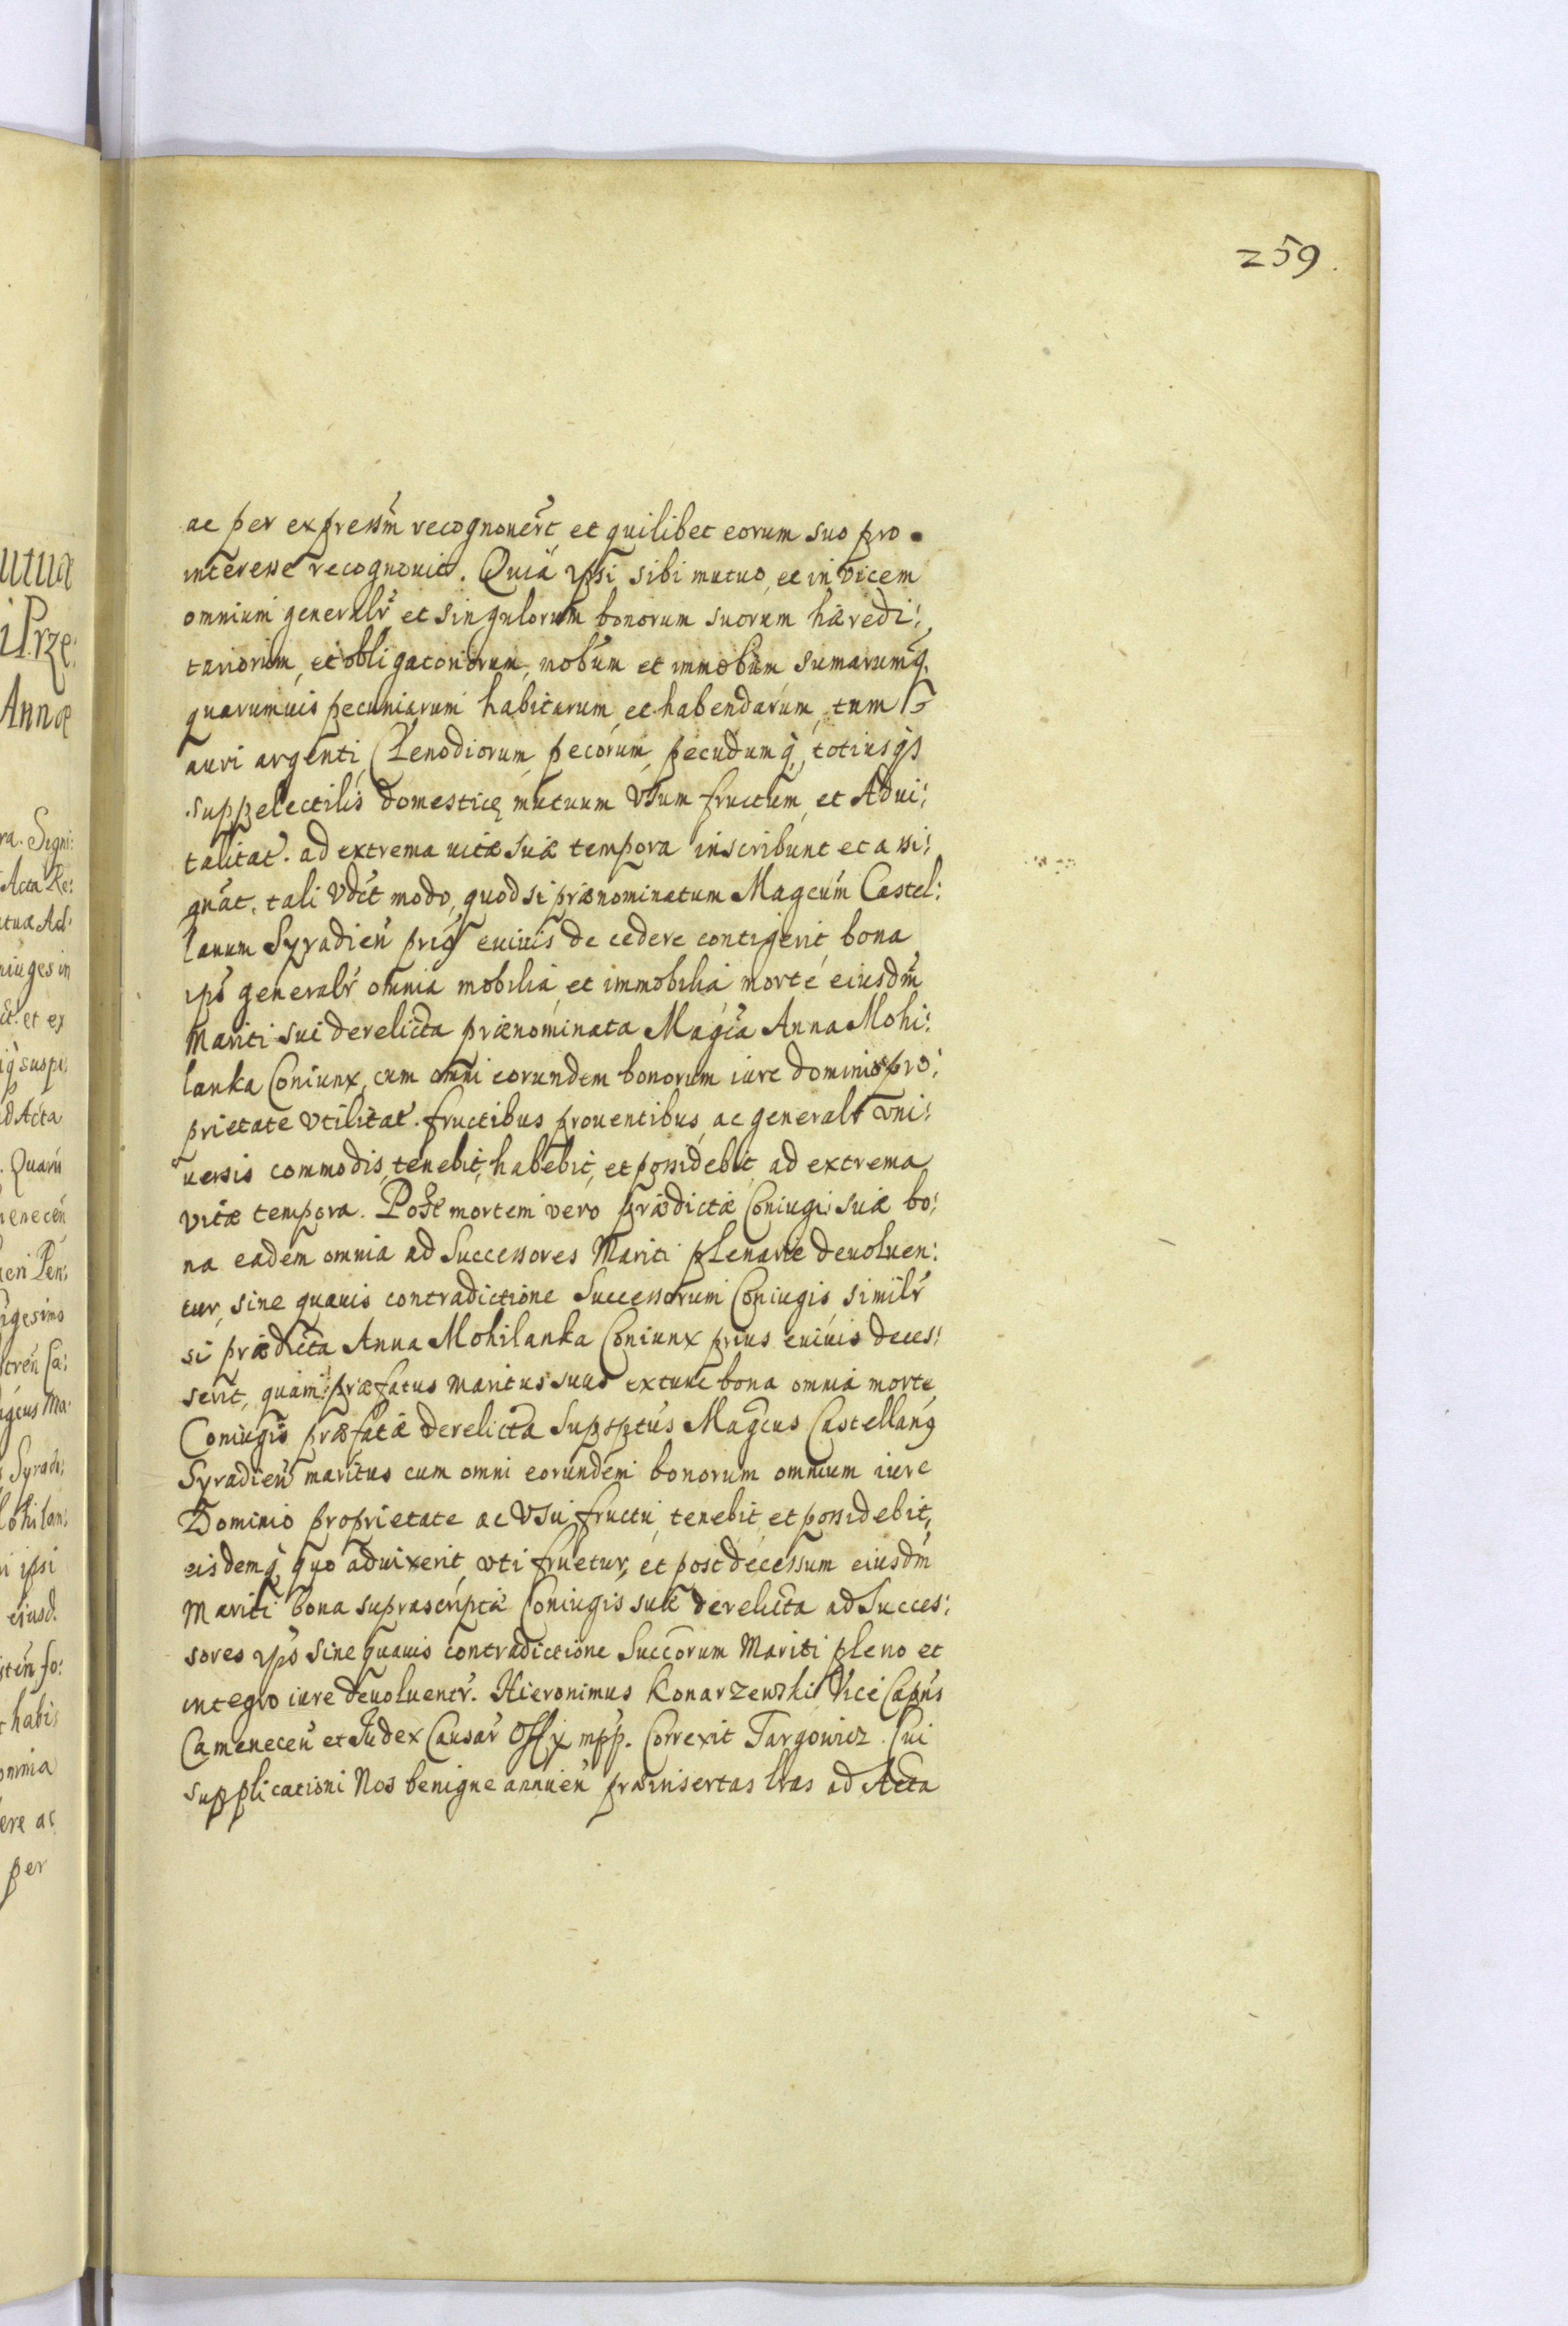 259.
ac per expressm recognouert et quilibet eorum suo pro
interesse recognouit. Quia ipsi sibi mutuo et in vicem
omnium generalr et singulorum bonorum suorum hæredi:
tariorum, et obligatoriorum, mobum et immobum sumarumq
quarumuis pecuniarum habitarum et habendarum, tum
auri argenti Clenodiorum pecorum, pecudumq, totiusqs
suppelectilis domesticę mutuum vsum fructum et Adui:
talitat. ad extrema uitæ suæ tempora inscribunt et assi:
gnāt. tali vdct modo, quod si prænominatum Magcum Castel:
lanum Syradień prius euiuis decedere contigerit bona
ips generalr omnia mobilia et immobilia morte eiusdm
Mariti sui derelicta prænominata Magca Anna Mohi:
lanka Coniunx, cum omni eorundem bonorum iure dominio pro:
prietate vtilitat. fructibus prouentibus, ac generalr vni:
uersis commodis, tenebit, habebit, et possidebit ad extrema
vitæ tempora. Post mortem vero prædictæ Coniugis suæ bo:
na eadem omnia ad Successores Mariti plenarie deuoluen:
tur, sine quauis contradictione Successorum Coniugis, similr
si prædicta Anna Mohilanka Coniunx prius euiuis deces:
serit, quam præfatus maritus suus extunc bona omnia morte
Coniugis præfatæ derelicta Suprsptus Magcus Castellanus
Syradień maritus cum omni eorundem bonorum omnium iure
Dominio proprietate ac vsufructu, tenebit et possidebit,
eisdemq quo aduixerit, vti fruetur, et post decessum eiusdm
Mariti bona suprascripta Coniugis suæ derelicta ad Succes:
sores ips sine quauis contradictione Succorum Mariti pleno et
integro iure deuoluentr. Hieronimus Konarzewski Vice Capns
Cameneceń et Judex Causar Offy mpp. Correxit Targowicz. Cui
supplicationi Nos benigne annuen præinsertas lras ad Acta